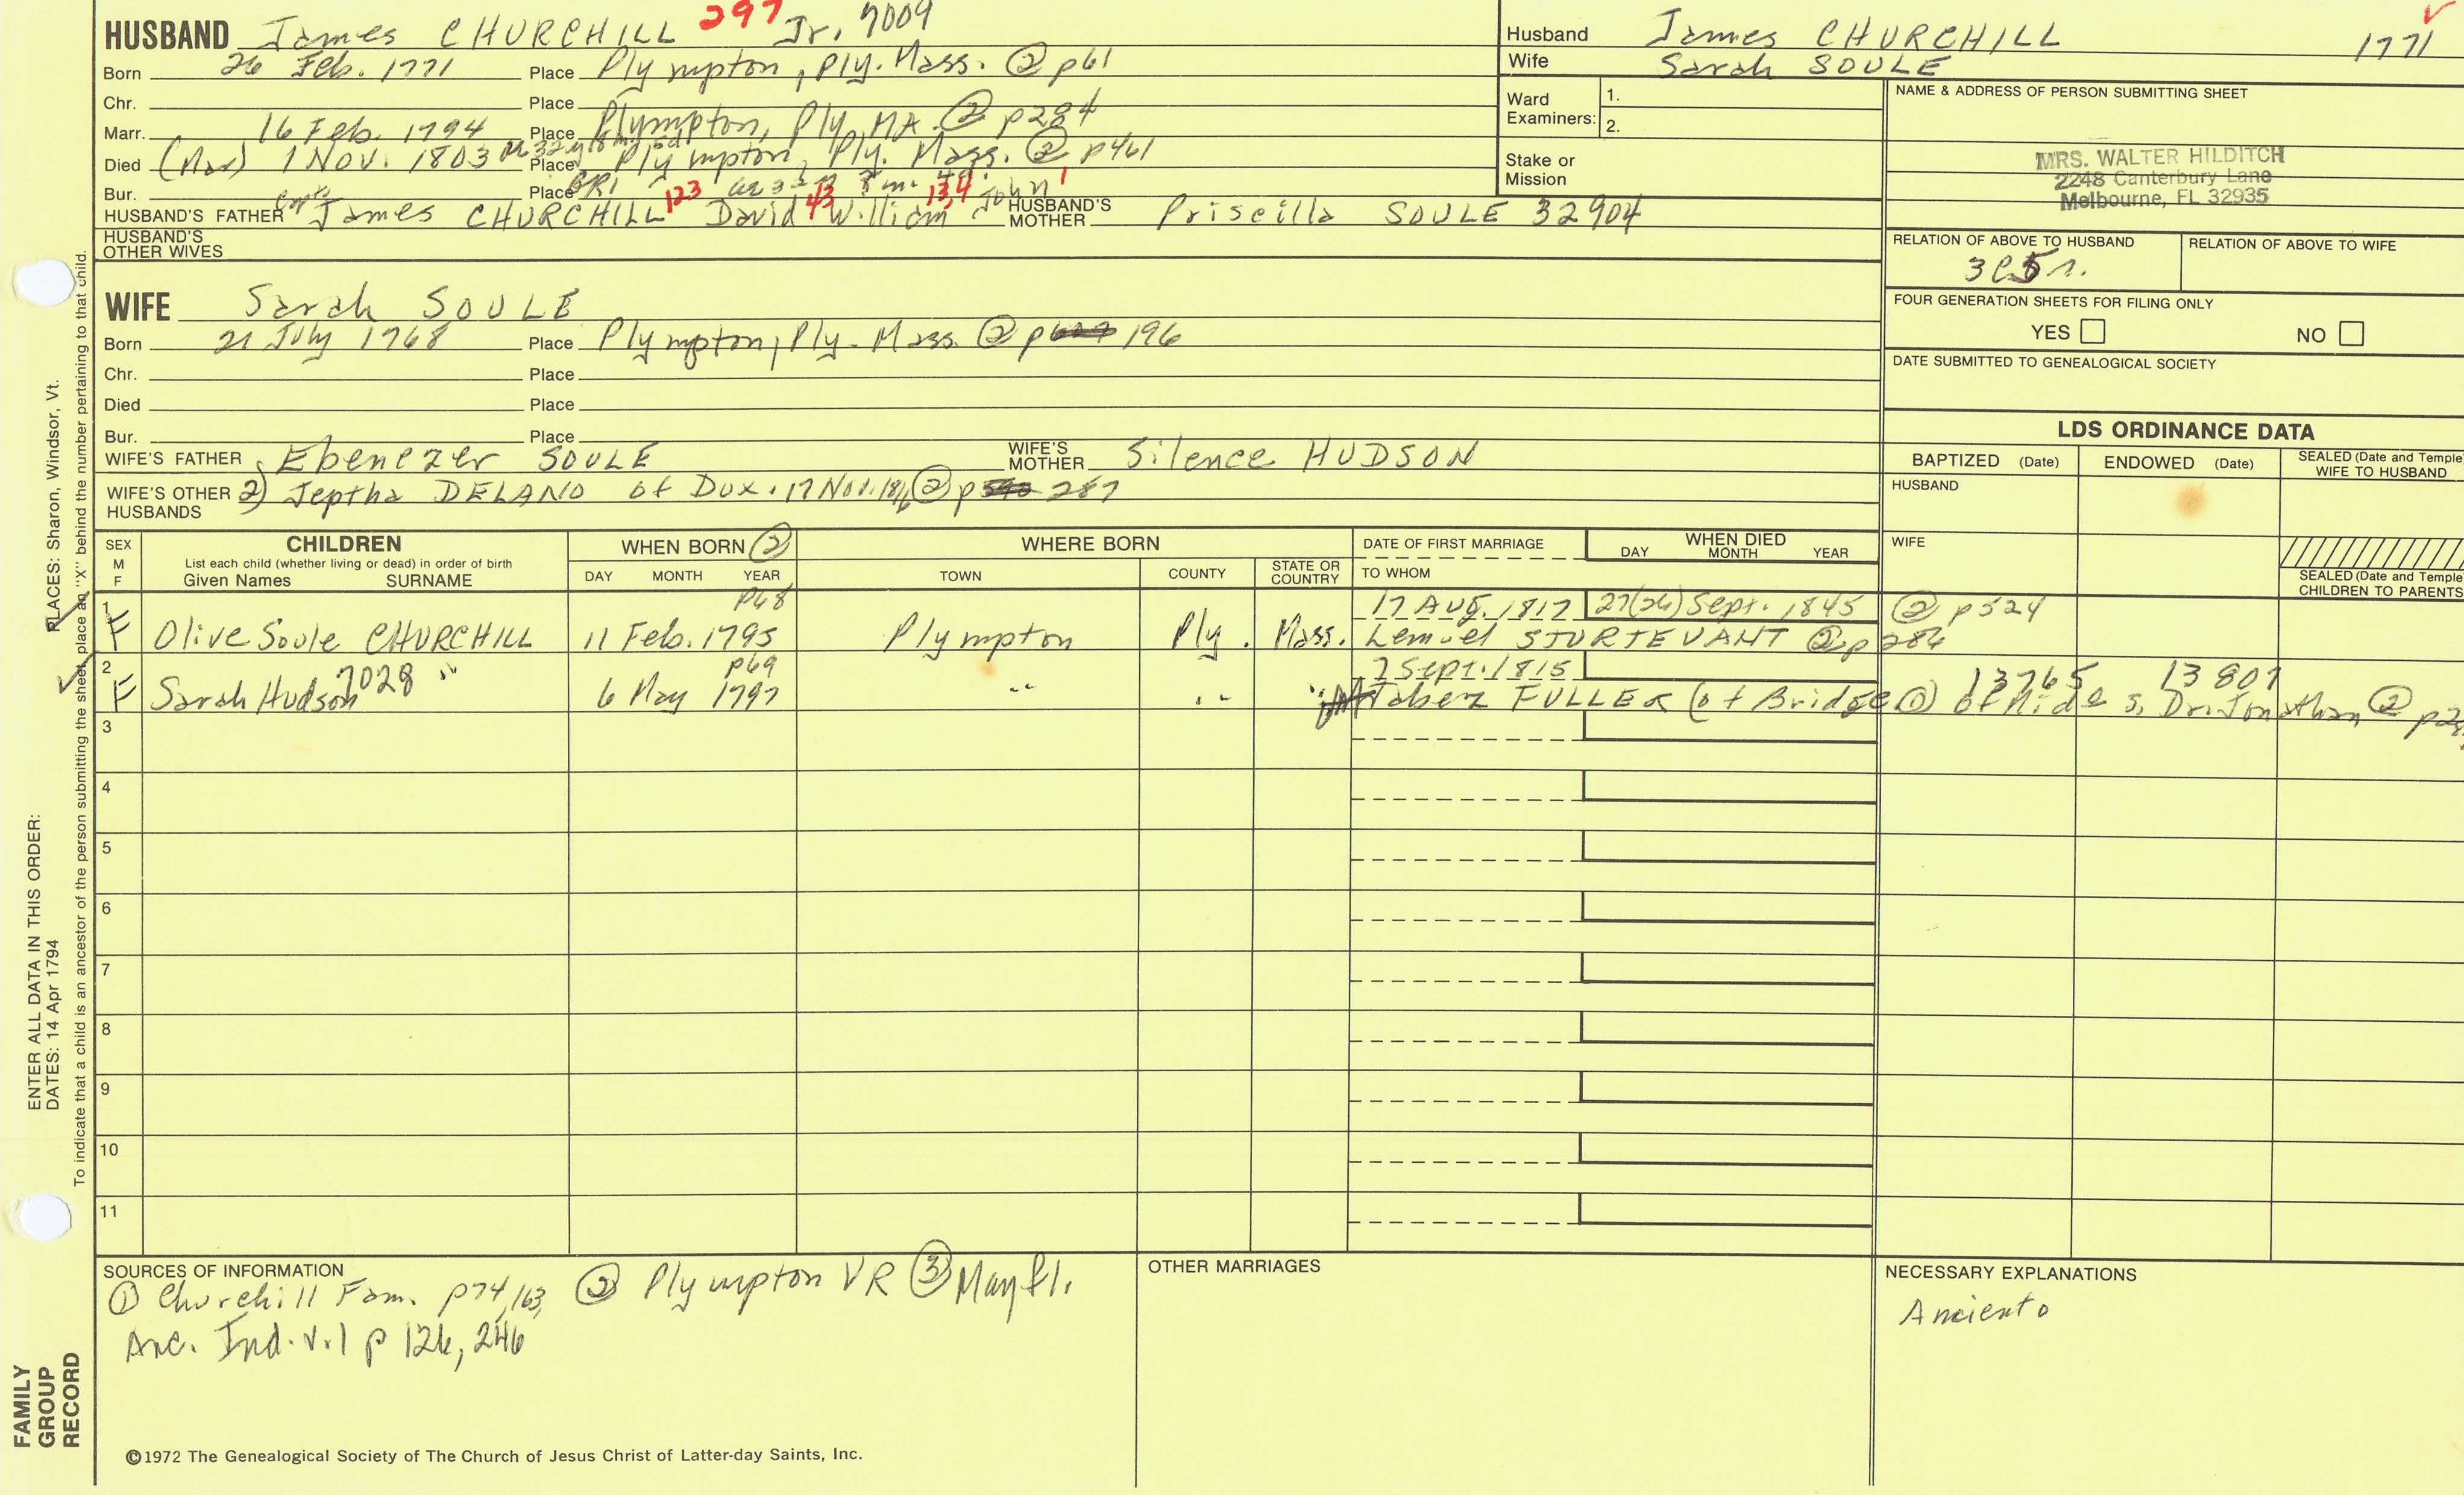 HUSBAND James CHURCHILL 297 Jr. 7009
Born 26 Feb. 1771 Place Plympton, Ply. Mass. ② p61
Chr. Place
Marr. 16 Feb. 1794 Place Plympton, Ply, MA ② p284
Died (Mar) 1 Nov. 1803 Place Plympton, Ply. Mass. ② p461
Bur. Place GR1
HUSBAND'S FATHER Capt. James CHURCHILL 123 David 43 William 13,4 John 1 HUSBAND'S MOTHER Priscilla SOULE 32904
HUSBAND'S OTHER WIVES
WIFE Sarah SOULE
Born 21 July 1768 Place Plympton, Ply. Mass. ② p 196
Chr. Place
Died Place
Bur. Place
WIFE'S FATHER Ebenezer SOULE WIFE'S MOTHER Silence HUDSON
WIFE'S OTHER HUSBANDS 2) Jeptha DELANO of Dux. 17 Nov. ② p 287
Husband James CHURCHILL 1771
Wife Sarah SOULE
Ward Examiners: 1.
2.
Stake or Mission
NAME & ADDRESS OF PERSON SUBMITTING SHEET
MRS. WALTER HILDITCH
2248 Canterbury Lane
Melbourne, FL 32935
RELATION OF ABOVE TO HUSBAND RELATION OF ABOVE TO WIFE
3C5r.
FOUR GENERATION SHEETS FOR FILING ONLY
YES NO
DATE SUBMITTED TO GENEALOGICAL SOCIETY
LDS ORDINANCE DATA
BAPTIZED (Date) ENDOWED (Date) SEALED (Date and Temple) WIFE TO HUSBAND
HUSBAND
WIFE
SEALED (Date and Temple) CHILDREN TO PARENTS
SEX M F
CHILDREN
List each child (whether living or dead) in order of birth
Given Names SURNAME
WHEN BORN ②
DAY MONTH YEAR
WHERE BORN
TOWN COUNTY STATE OR COUNTRY
DATE OF FIRST MARRIAGE
TO WHOM
WHEN DIED
DAY MONTH YEAR
1 p68 17 Aug. 1817 27(26) Sept. 1845 ② p524
F Olive Soule CHURCHILL 11 Feb. 1795 Plympton Ply. Mass. Lemuel STURTEVANT ② p 286
2 7028 p69 7 Sept. 1815 13765 13807
F Sarah Hudson " 6 May 1797 " " " Jabez FULLER (of Bridge ①) of Mid. s. Dr. Jonathan ②
3
4
5
6
7
8
9
10
11
SOURCES OF INFORMATION
① Churchill Fam. p74,163, ② Plympton VR ③ Mayfl.
Anc. Ind. v.1 p 126, 246
OTHER MARRIAGES
NECESSARY EXPLANATIONS
Anciento
©1972 The Genealogical Society of The Church of Jesus Christ of Latter-day Saints, Inc.
PLACES: Sharon, Windsor, Vt.
To indicate that a child is an ancestor of the person submitting the sheet, place an "X" behind the number pertaining to that child.
ENTER ALL DATA IN THIS ORDER:
DATES: 14 Apr 1794
FAMILY
GROUP
RECORD